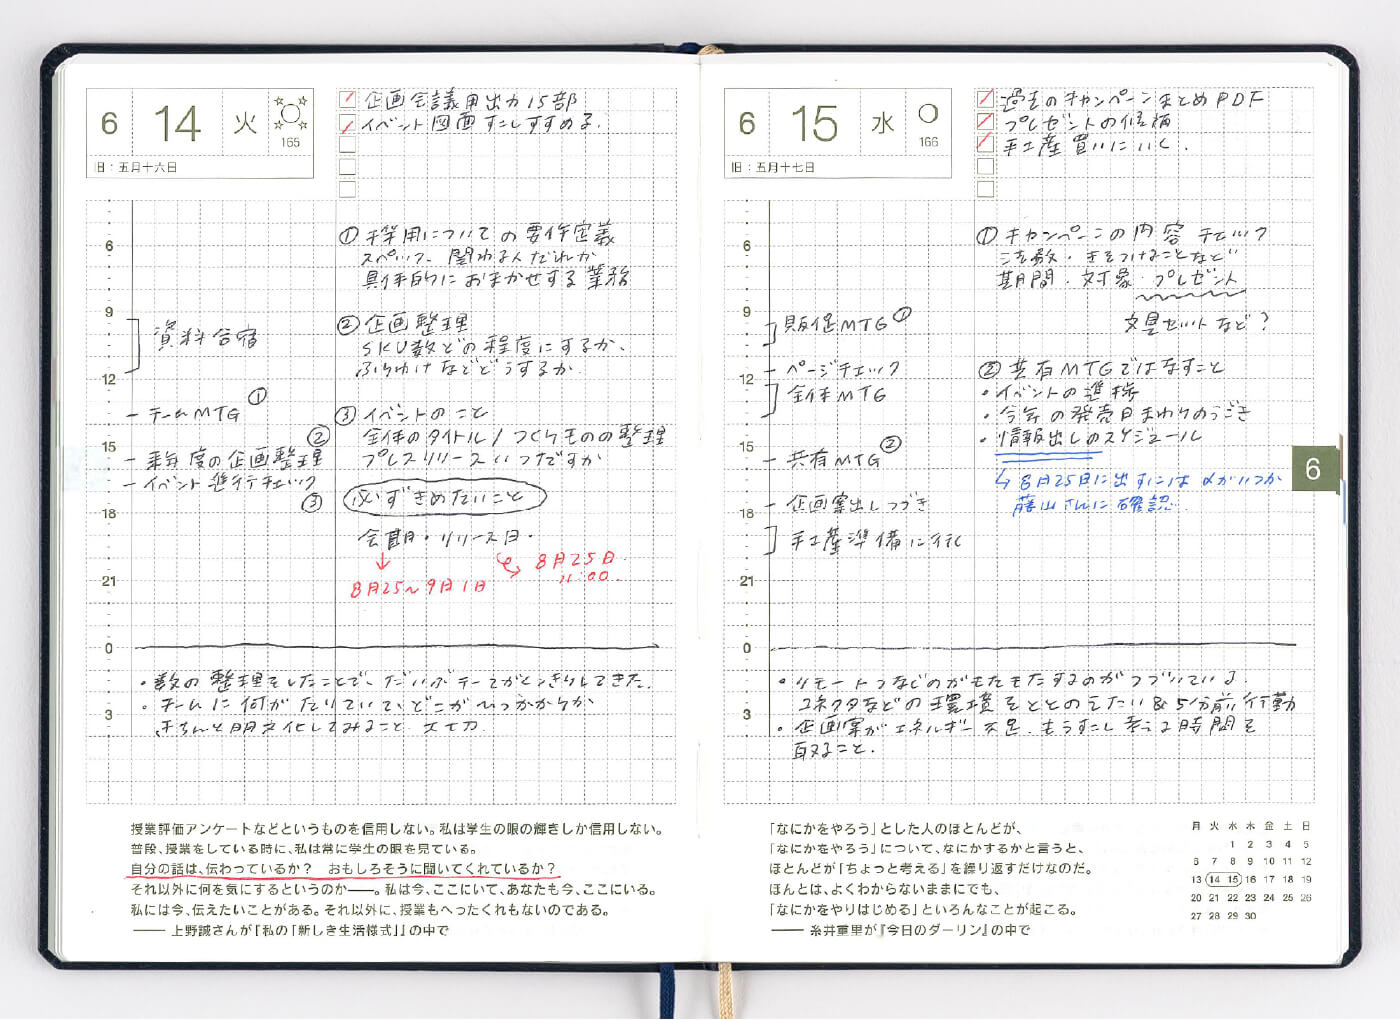 6 14 火
165
旧：五月十六日
企画会議用出力15部
イベント図画すこしすすめる.
6
9
12
15
18
21
0
3
資料合宿
チームMTG ①
来年度の企画整理 ②
イベント進行チェック ③
① 採用についての要件定義
スペック、関わる人だれか
具体的におまかせする業務
② 企画整理
SKU数どの程度にするか、
ふりわけなどどうするか.
③ イベントのこと
全体のタイトル / つくりものの整理
プレスリリースいつだすか
必ずきめたいこと
会期・リリース日・
8月25〜9月1日
8月25日.
11:00.
・数の整理をしたことで、だいぶテーマがはっきりしてきた.
・チームに何がたりていて、どこがひっかかりか
きちんと明文化してみること 大切.
授業評価アンケートなどというものを信用しない。私は学生の眼の輝きしか信用しない。
普段、授業をしている時に、私は常に学生の眼を見ている。
自分の話は、伝わっているか？　おもしろそうに聞いてくれているか？
それ以外に何を気にするというのか――。私は今、ここにいて、あなたも今、ここにいる。
私には今、伝えたいことがある。それ以外に、授業もへったくれもないのである。
―― 上野誠さんが『私の「新しき生活様式」』の中で
6 15 水
166
旧：五月十七日
過去のキャンペーンまとめPDF
プレゼントの候補
手土産買いにいく.
6
9
12
15
18
21
0
3
販促MTG ①
ページチェック
全体MTG
共有MTG ②
企画案出しつづき
手土産準備に行く
① キャンペーンの内容チェック
注意・きをつけることなど
期間・対象・プレゼント
文具セットなど？
② 共有MTGではなすこと
・イベントの進捗
・今年の発売日まわりのうごき
・情報出しのスケジュール
↳ 8月25日に出すには〆がいつか
藤山さんに確認.
・リモートつなぐのがもたもたするのがつづいている.
コネクタなどの環境をととのえたい & 5分前行動
・企画案がエネルギー不足. もうすこし考える時間を
取ること.
6
「なにかをやろう」とした人のほとんどが、
「なにかをやろう」について、なにかするかと言うと、
ほとんどが「ちょっと考える」を繰り返すだけなのだ。
ほんとは、よくわからないままにでも、
「なにかをやりはじめる」といろんなことが起こる。
―― 糸井重里が『今日のダーリン』の中で
月 火 水 木 金 土 日
1 2 3 4 5
6 7 8 9 10 11 12
13 14 15 16 17 18 19
20 21 22 23 24 25 26
27 28 29 30